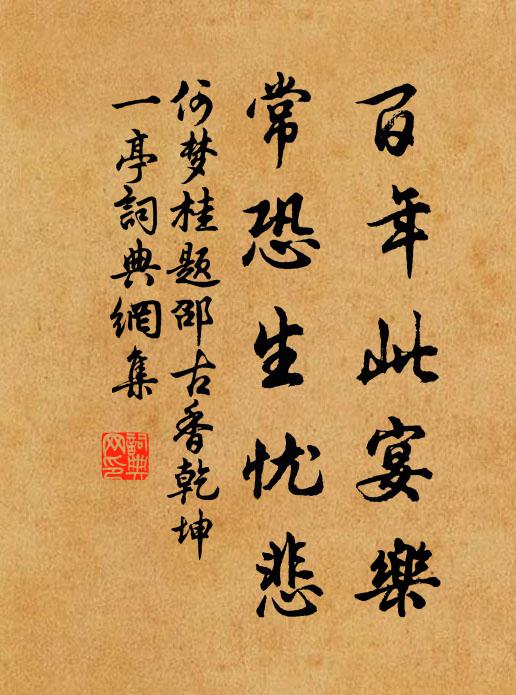 百年此宴樂
常恐生忧悲
何梦桂题邵古香乾坤
一亭詞典網集
詞典
网印